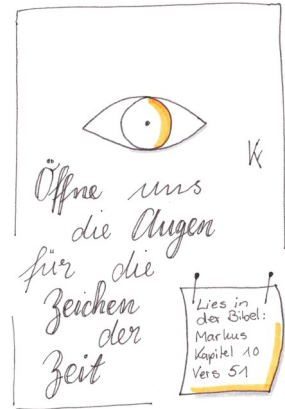 Öffne uns
die Augen
für die
Zeichen
der
Zeit
Lies in
der Bibel:
Markus
Kapitel 10
Vers 51